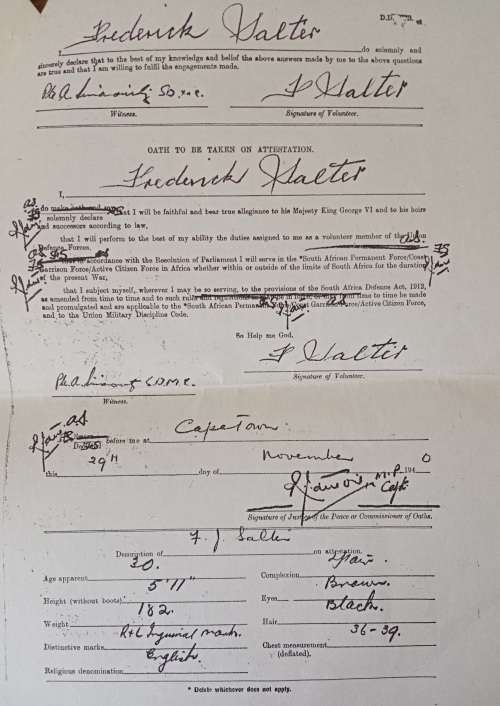 D.D.
I, Frederick Salter do solemnly and
sincerely declare that to the best of my knowledge and belief the above answers made by me to the above questions
are true and that I am willing to fulfil the engagements made.
F Salter
Witness. Signature of Volunteer.
OATH TO BE TAKEN ON ATTESTATION.
I, Frederick Salter
do make oath and say that I will be faithful and bear true allegiance to his Majesty King George VI and to his heirs
solemnly declare
and successors according to law,
that I will perform to the best of my ability the duties assigned to me as a volunteer member of the Union
Defence Forces.
that in accordance with the Resolution of Parliament I will serve in the *South African Permanent Force/Coast
Garrison Force/Active Citizen Force in Africa whether within or outside of the limits of South Africa for the duration
of the present War,
that I subject myself, wherever I may be so serving, to the provisions of the South Africa Defence Act, 1912,
as amended from time to time and to such rules and regulations from time to time be made
and promulgated and are applicable to the *South African Permanent Coast Garrison Force/Active Citizen Force,
and to the Union Military Discipline Code.
So Help me God.
F Salter
Signature of Volunteer.
Witness.
a.S.
before me at Capetown
this 29th day of November 1940
M.P. Capt
Signature of Justice of the Peace or Commissioner of Oaths.
Description of F. J. Salter on attestation.
Age apparent 30. Complexion Fair.
Height (without boots) 5' 11" Eyes Brown.
Weight 182. Hair Black.
Distinctive marks R+L Inguinal marks. Chest measurement 36-39.
(deflated).
Religious denomination English.
* Delete whichever does not apply.